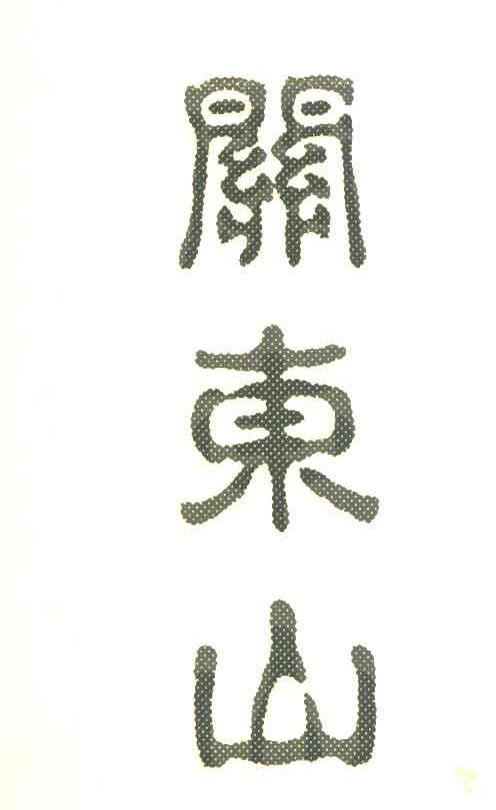 關東山